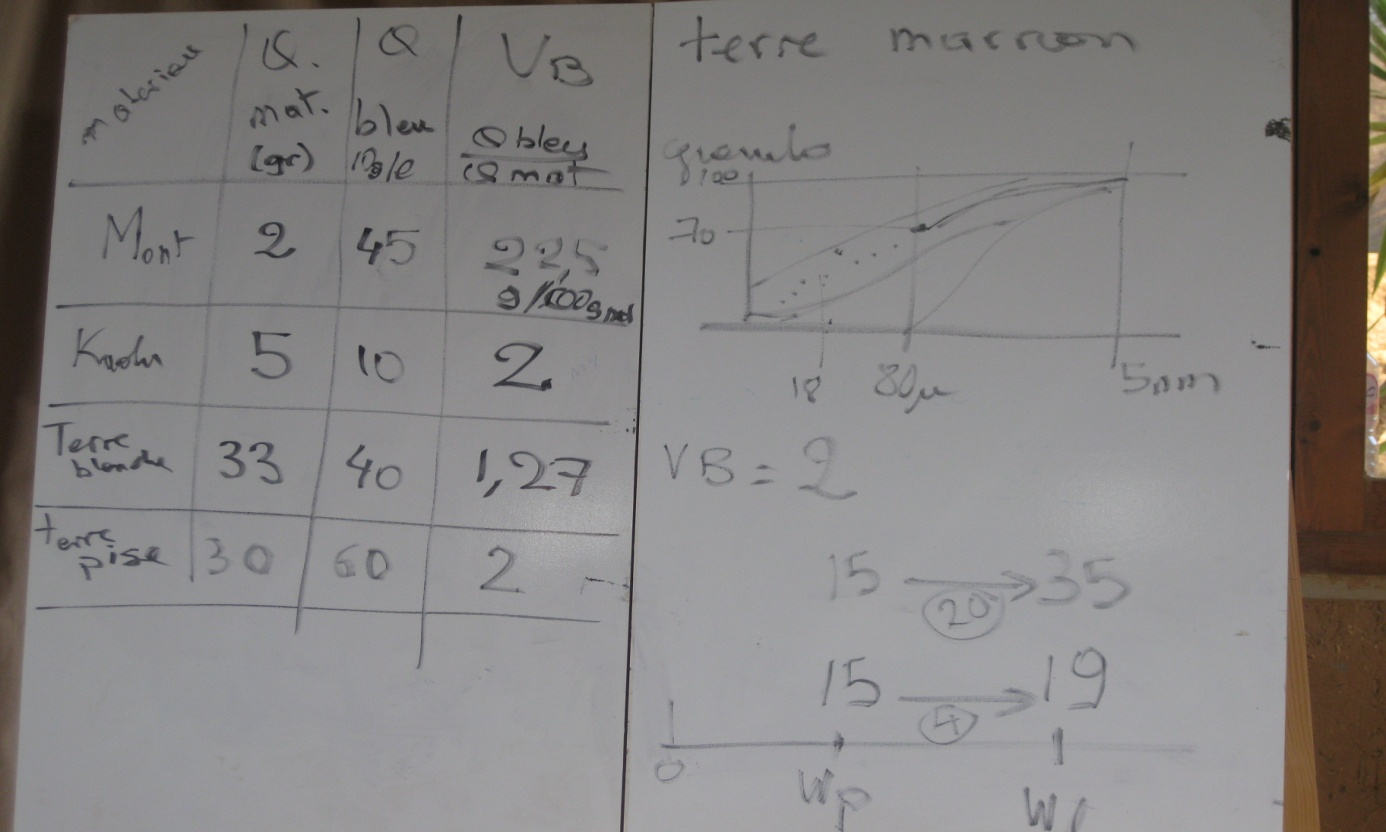 materiau Q. Q VB
mat. bleu Q bleu
(gr) 10g/l Q mat
Mont 2 45 22,5
g/100g mat
Kaolin 5 10 2
Terre blanche 33 40 1,27
terre pisé 30 60 2
terre marron
granulo
100
70
18 80µ 5mm
VB = 2
15 → 35
20
15 → 19
4
0 Wp Wl